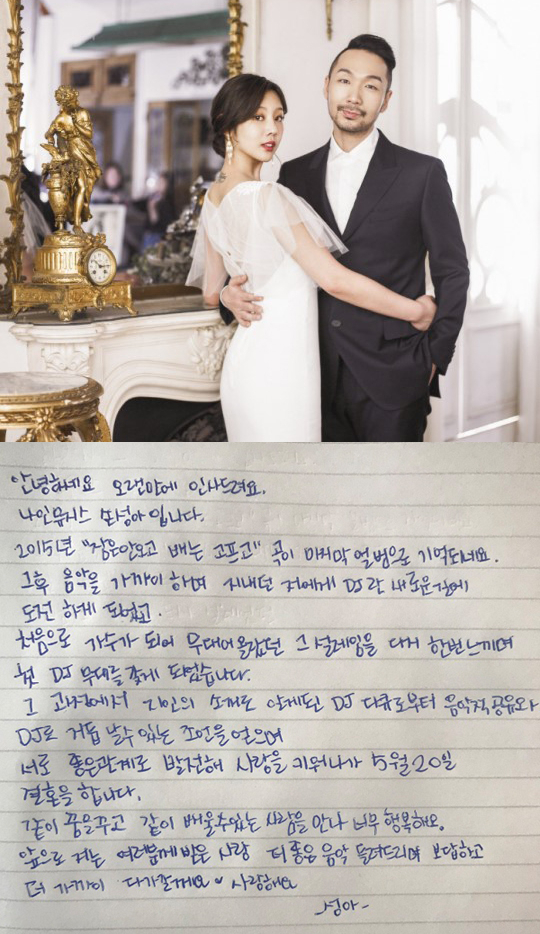 안녕하세요 오랜만에 인사드려요.
나인뮤지스 손성아 입니다.
2015년 "잠은안오고 배는 고프고" 곡이 마지막 앨범으로 기억되네요.
그후 음악을 가까이 하며 지내던 저에게 DJ란 새로운길에
도전 하게 되었고.
처음으로 가수가 되어 무대에 올랐던 그 설레임을 다시 한번느끼며
첫 DJ 무대를 갖게 되었습니다.
그 과정에서 지인의 소개로 알게된 DJ 다큐로부터 음악적공유와
DJ로 거듭 날수 있는 조언을 얻으며
서로 좋은관계로 발전해 사랑을 키워나가 5월 20일
결혼을 합니다.
같이 꿈을꾸고 같이 배울수있는 사람을 만나 너무 행복해요.
앞으로 저는 여러분께 받은 사랑 더 좋은 음악 들려드리며 보답하고
더 가까이 다가갈께요 ♥ 사랑해요
-성아-